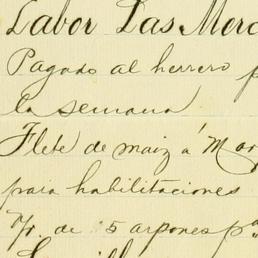 Labor Las Merc
Pagado al herrero p
la semana
Flete de maiz á Mar
para habilitaciones
de 5 arpones pª